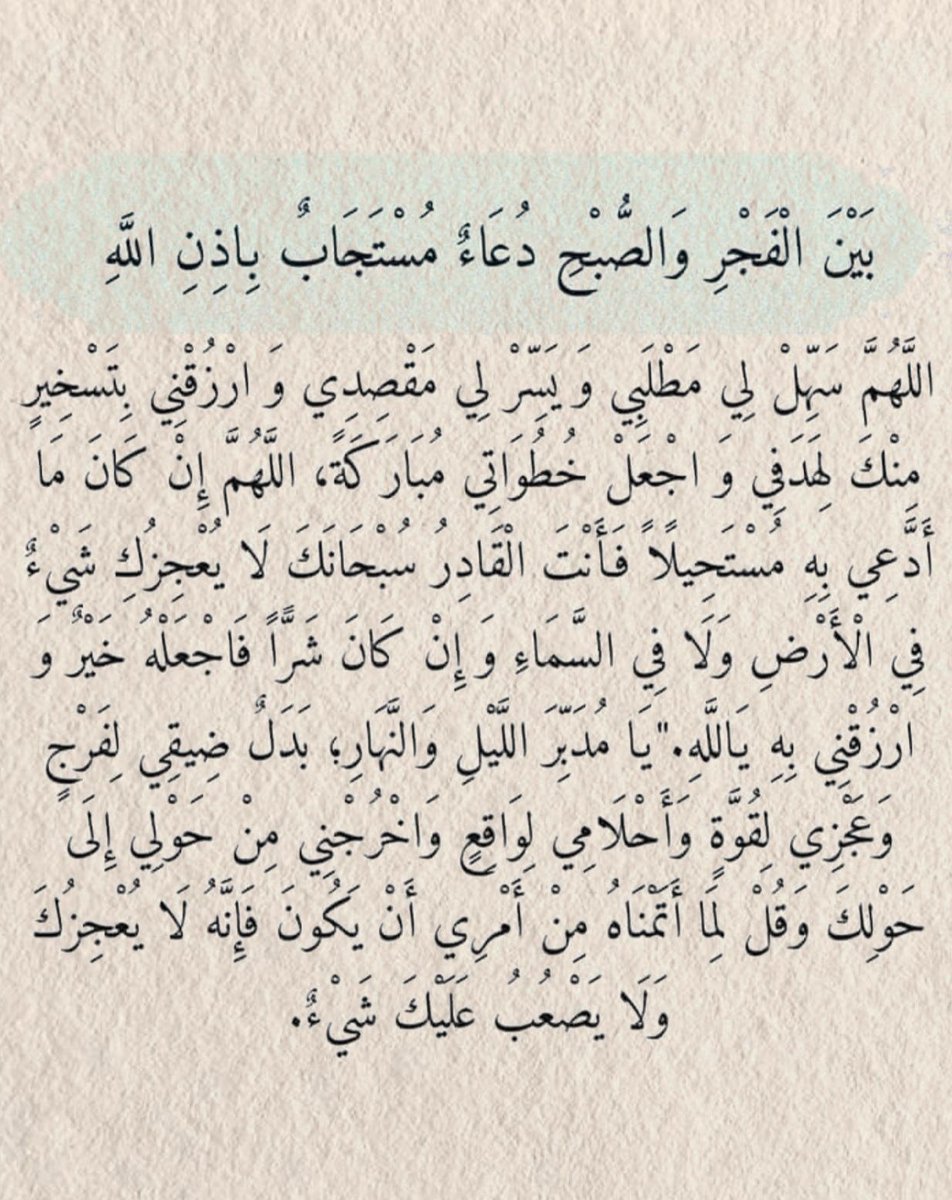 بَيْنَ الْفَجْرِ وَالصُّبْحِ دُعَاءٌ مُسْتَجَابٌ بِاذِنِ اللَّهِ
اللَّهُمَّ سَهِّلْ لِي مَطْلَبِي وَ يَسِّرْ لِي مَقْصِدِي وَ ارْزُقْنِي بِتَسْخِيرٍ
مِنْكَ لِهَدَفِي وَ اجْعَلْ خُطُوَاتِي مُبَارَكَةً، اللَّهُمَّ إِنْ كَانَ مَا
أَدَّعِي بِهِ مُسْتَحِيلًاً فَأَنْتَ الْقَادِرُ سُبْحَانَكَ لَا يُعْجِزُكِ شَيْءٌ
فِي الْأَرْضِ وَلَا فِي السَّمَاءِ وَ إِنْ كَانَ شَرًّاً فَاجْعَلْهُ خَيْرٌ وَ
ارْزُقْنِي بِهِ يَاللَّهِ."يَا مُدَبِّرَ اللَّيْلِ وَالنَّهَارِ؛ بَدَلٌ ضِيقِي لِفَرْجٍ
وَعَجْزِي لِقُوَّةٍ وَأَحْلَامِي لِوَاقِعٍ وَاخْرُجْنِي مِنْ حَوْلِي إِلَى
حَوْلِكَ وَقُلْ لِمَا أَتَمْنَاهُ مِنْ أَمْرِي أَنْ يَكُونَ فَإِنَّهُ لَا يُعْجِزُكَ
وَلَا يَصْعُبُ عَلَيْكَ شَيْءٌ.